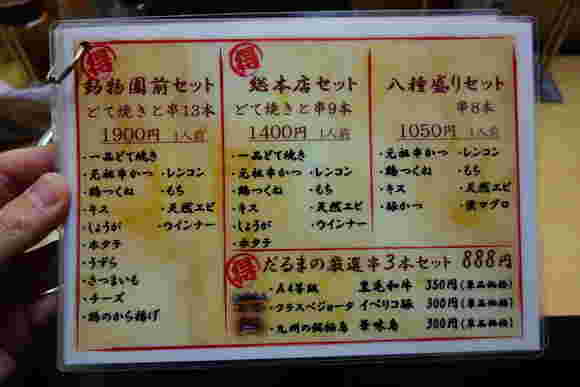 得
動物園前セット
どて焼きと串13本
1900円 1人前
・一品どて焼き
・元祖串かつ ・レンコン
・鶏つくね ・もち
・キス ・天然エビ
・しょうが ・ウインナー
・ホタテ
・うずら
・さつまいも
・チーズ
・鶏のから揚げ
得
総本店セット
どて焼きと串9本
1400円 1人前
・一品どて焼き
・元祖串かつ ・レンコン
・鶏つくね ・もち
・キス ・天然エビ
・しょうが ・ウインナー
・ホタテ
八種盛りセット
串8本
1050円 1人前
・元祖串かつ ・レンコン
・鶏つくね ・もち
・キス ・天然エビ
・豚かつ ・黄マグロ
得
だるまの厳選串3本セット 888円
・A4等級 黒毛和牛 350円(単品価格)
・クラスベジョータ イベリコ豚 300円(単品価格)
・九州の銘柄鳥 華味鳥 300円(単品価格)